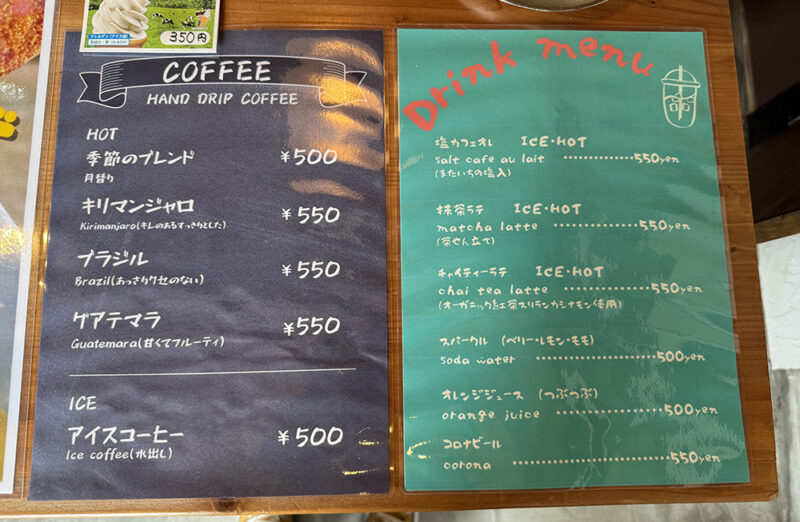 350円
COFFEE
HAND DRIP COFFEE
HOT
季節のブレンド ¥500
月替り
キリマンジャロ ¥550
Kirimanjaro(キレのあるすっきりとした)
ブラジル ¥550
Brazil(あっさりクセのない)
グアテマラ ¥550
Guatemara(甘くてフルーティ)
ICE
アイスコーヒー ¥500
Ice coffee(水出し)
Drink menu
塩カフェオレ ICE・HOT
salt cafe au lait ············550yen
(またいちの塩入)
抹茶ラテ ICE・HOT
matcha latte ············550yen
(茶せん立て)
チャイティーラテ ICE・HOT
chai tea latte ············550yen
(オーガニック紅茶スリランカシナモン使用)
スパークル (ベリー・レモン・モモ)
soda water ············500yen
オレンジジュース (つぶつぶ)
orange juice ············500yen
コロナビール
corona ············550yen